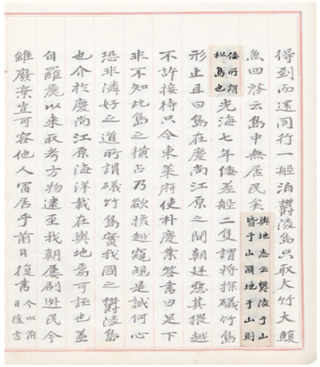 得到而還同行一船泊鬱陵島只取大竹大鰒
魚回啓云島中無居民矣
輿地志云鬱陵于山
皆于山國地于山則
倭所謂
松島也
光海七年倭差船二隻謂將探礒竹島
形止且曰島在慶尚江原之間朝廷惡其猥越
不許接待只令東萊府使朴慶業答書曰足下
非不知此島之橫占乃欲攙越窺覘是誠何心
恐非隣好之道所謂礒竹島實我國之鬱陵島
也介於慶尚江原海洋載在輿地焉可誣也盖
自羅麗以來取考方物逮至我朝屢刷逃民今
雖廢棄豈可容他人冒居乎前日復書
今以前
日復書